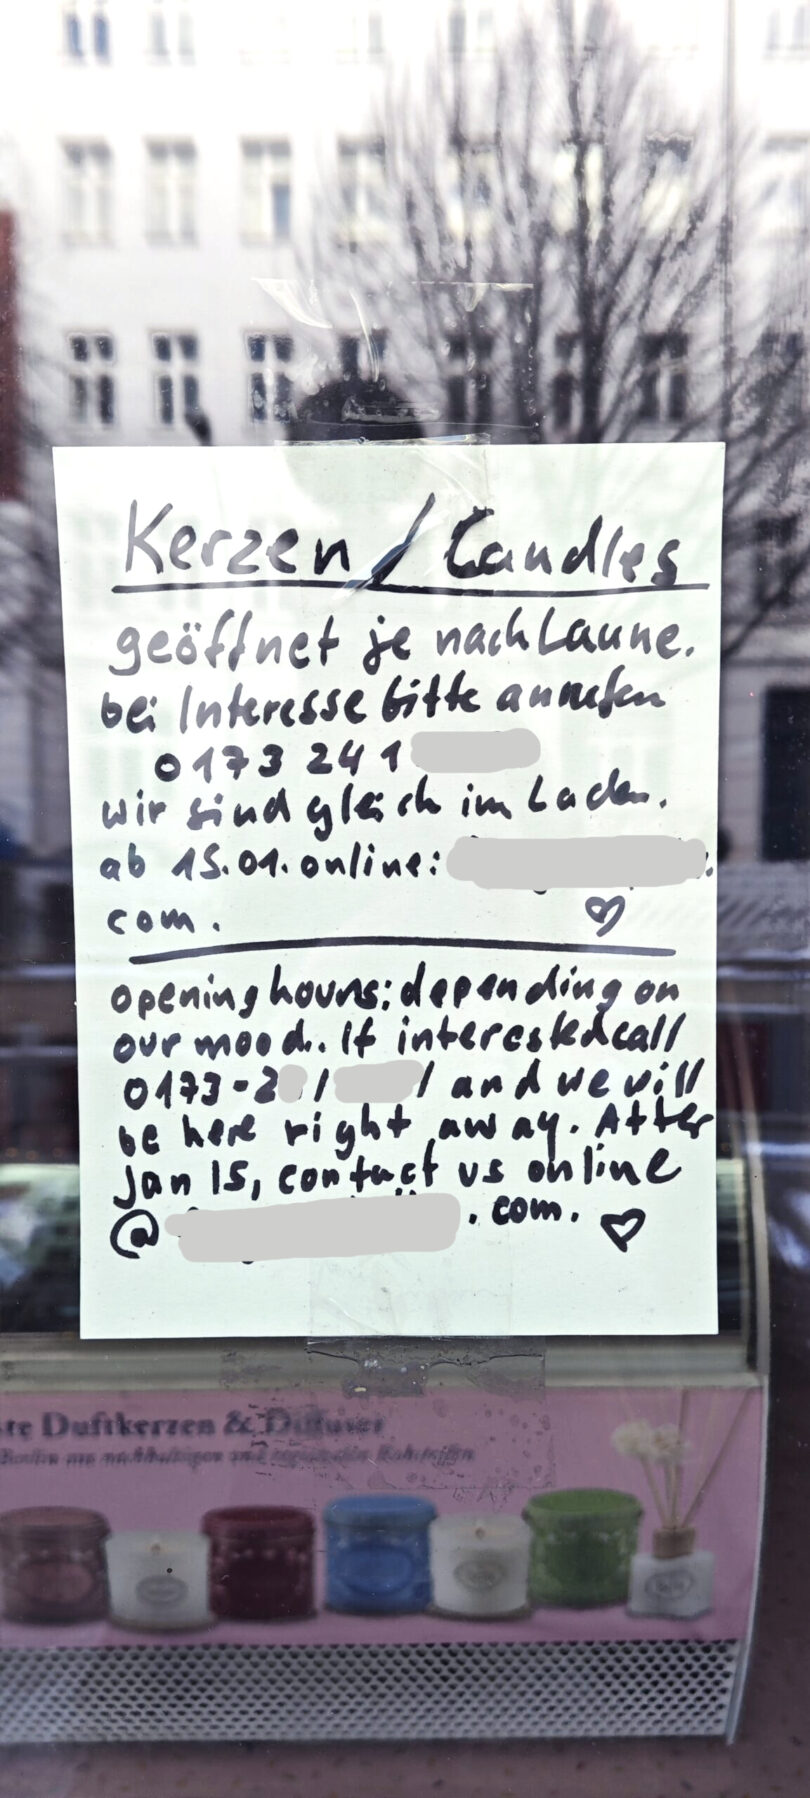 Kerzen / Candles
geöffnet je nach Laune.
bei Interesse bitte anrufen
0173 241
wir sind gleich im Laden.
ab 15.01. online:
com. ♡
opening hours: depending on
our mood. If interested call
0173-2 / / and we will
be here right away. After
Jan 15, contact us online
@ .com. ♡
te Duftkerzen & Diffuser
Berlin aus nachhaltigen und Rohstoffen